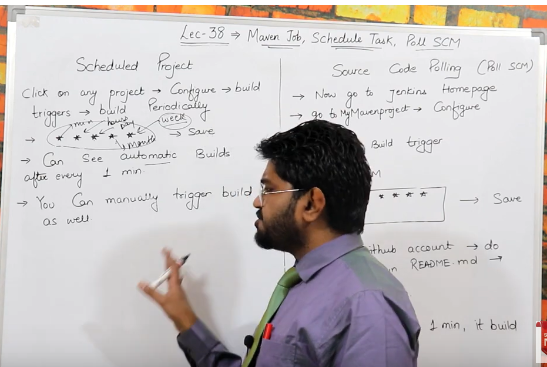 Lec-38 ⇒ Maven Job, Schedule Task, Poll SCM
Scheduled Project
Click on any project → Configure → build
triggers → build Periodically
min hour day week
→ * * * * * → Save
month
→ Can See automatic Builds
after every 1 min.
→ You Can manually trigger build
as well
Source Code Polling (Poll SCM)
→ Now go to Jenkins Homepage
→ go to MyMavenproject → Configure
Build trigger
* * * * → Save
github account → do
README.md →
1 min, it build